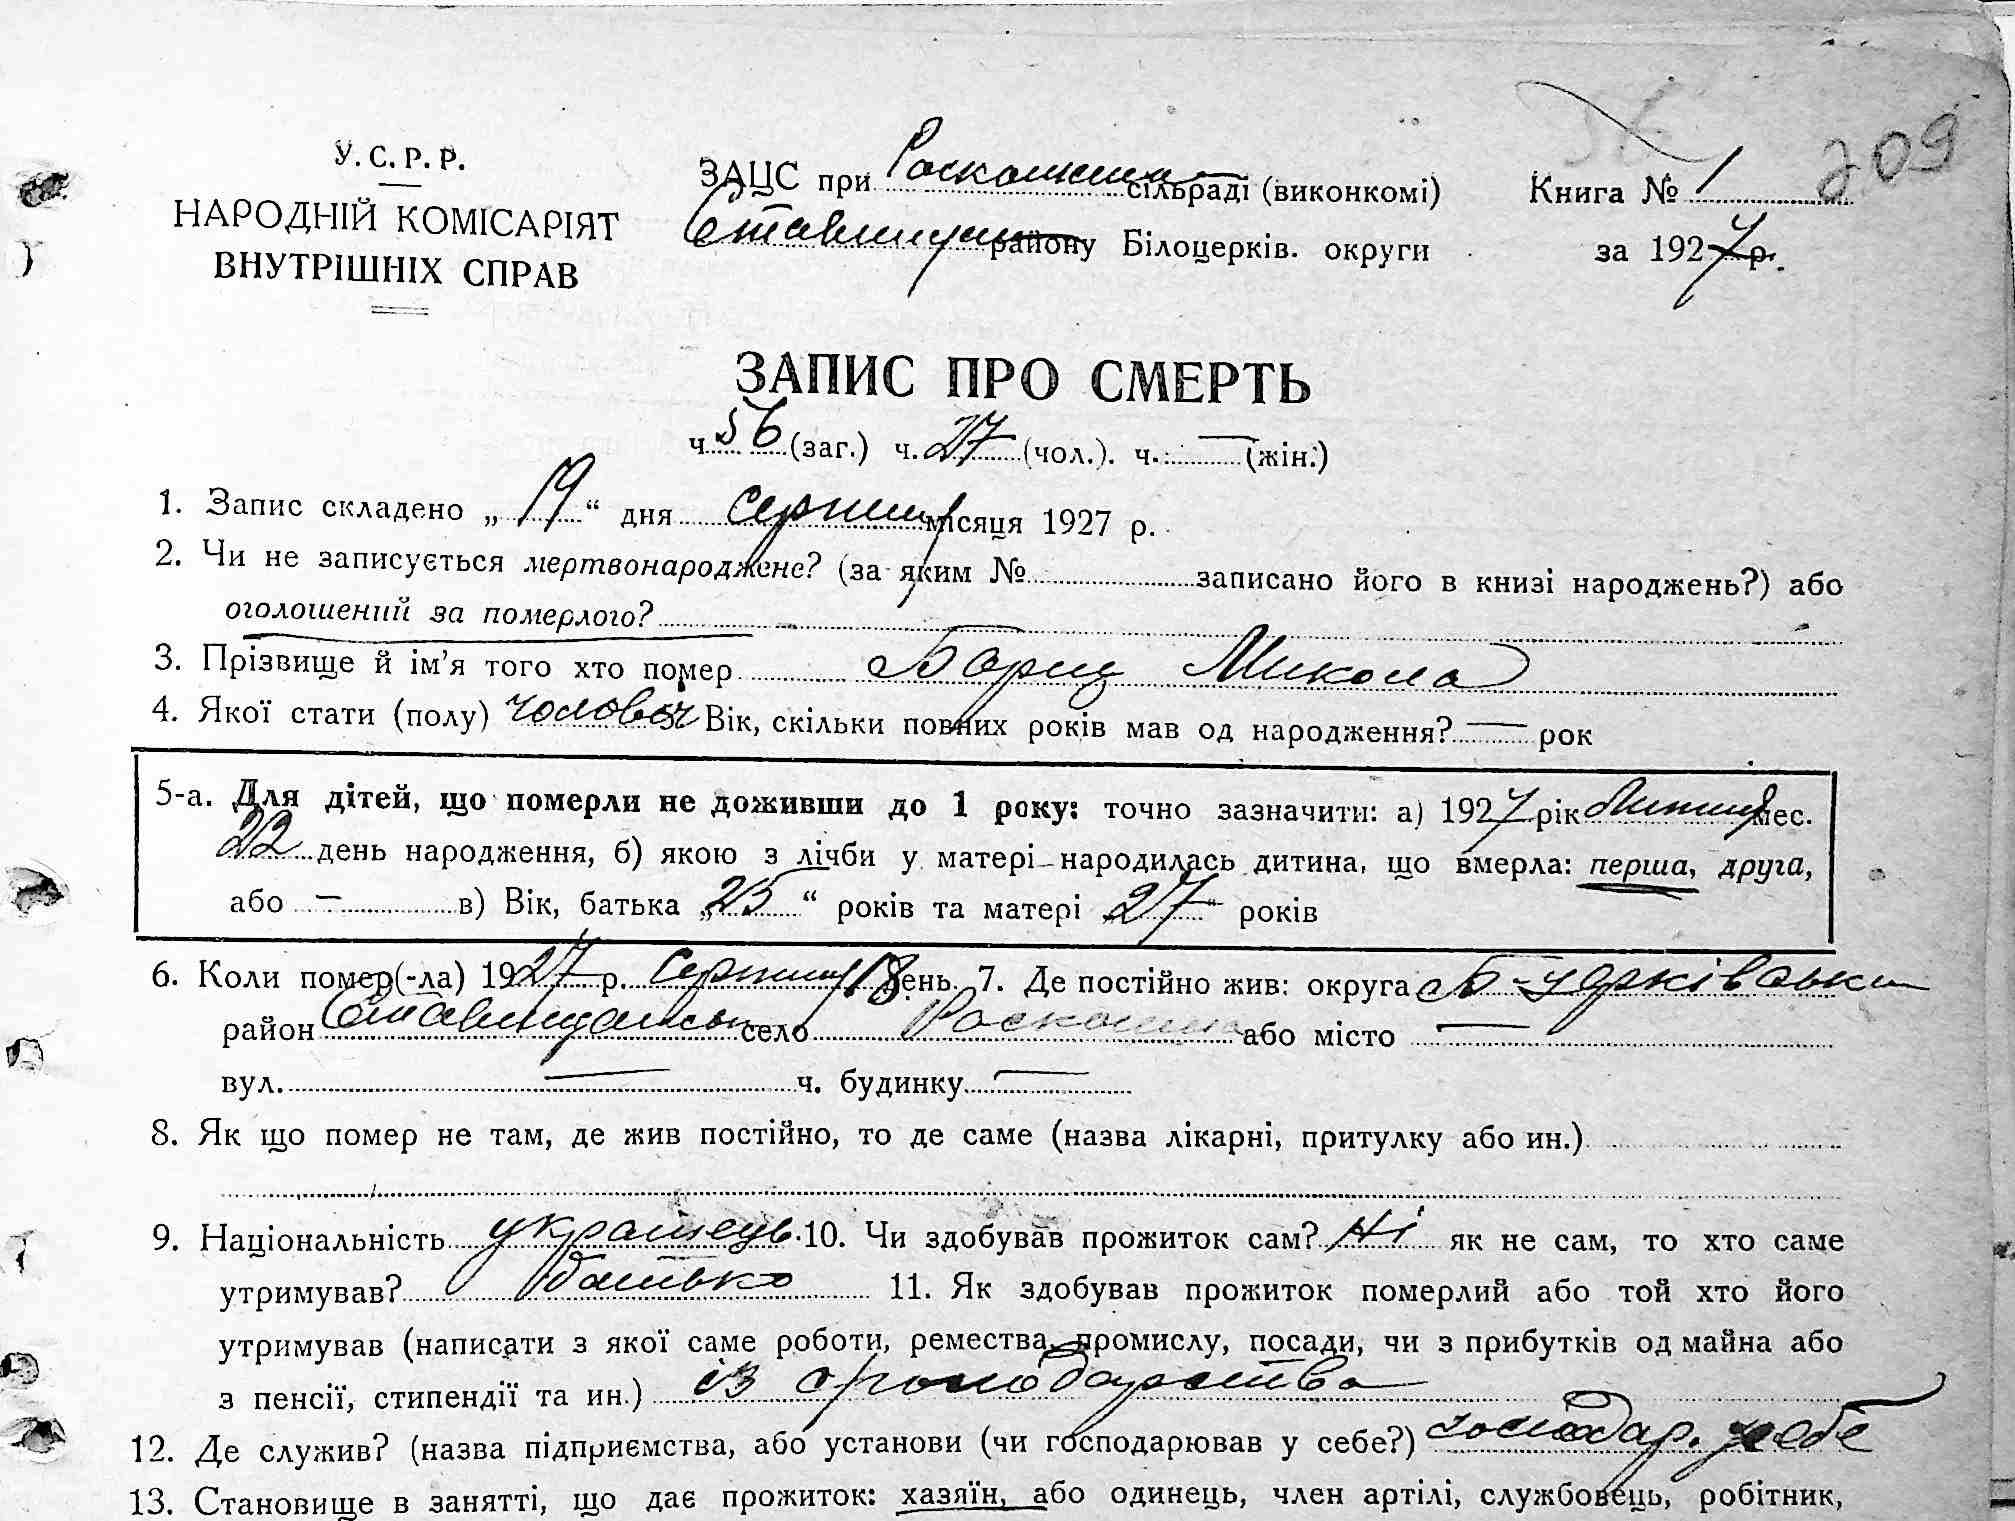 209
У. С. Р. Р.
НАРОДНІЙ КОМІСАРІЯТ
ВНУТРІШНІХ СПРАВ
ЗАЦС при Роскошна сільраді (виконкомі)
Ставищан району Білоцерків. округи
Книга № 1
за 1927 р.
ЗАПИС ПРО СМЕРТЬ
ч. 56 (заг.) ч. 27 (чол.). ч. — (жін.)
1. Запис складено „19“ дня серпня місяця 1927 р.
2. Чи не записується мертвонароджене? (за яким № записано його в книзі народжень?) або
оголошений за померлого?
3. Прізвище й ім’я того хто помер Бориц Микола
4. Якої стати (полу) чоловіч Вік, скільки повних років мав од народження? — рок
5-а. Для дітей, що померли не доживши до 1 року: точно зазначити: а) 1927 рік липня мес.
22 день народження, б) якою з лічби у матері народилась дитина, що вмерла: перша, друга,
або — в) Вік, батька „25“ років та матері „27“ років
6. Коли помер(-ла) 1927 р. серпня 18 день. 7. Де постійно жив: округа Б-церківськ
район Ставищанськ село Роскошна або місто —
вул. — ч. будинку —
8. Як що помер не там, де жив постійно, то де саме (назва лікарні, притулку або ин.)
9. Національність українець 10. Чи здобував прожиток сам? Ні як не сам, то хто саме
утримував? батько 11. Як здобував прожиток померлий або той хто його
утримував (написати з якої саме роботи, ремества, промислу, посади, чи з прибутків од майна або
з пенсії, стипендії та ин.) із господарства
12. Де служив? (назва підприємства, або установи (чи господарював у себе?) господар. у себе
13. Становище в занятті, що дає прожиток: хазяїн, або одинець, член артілі, службовець, робітник,